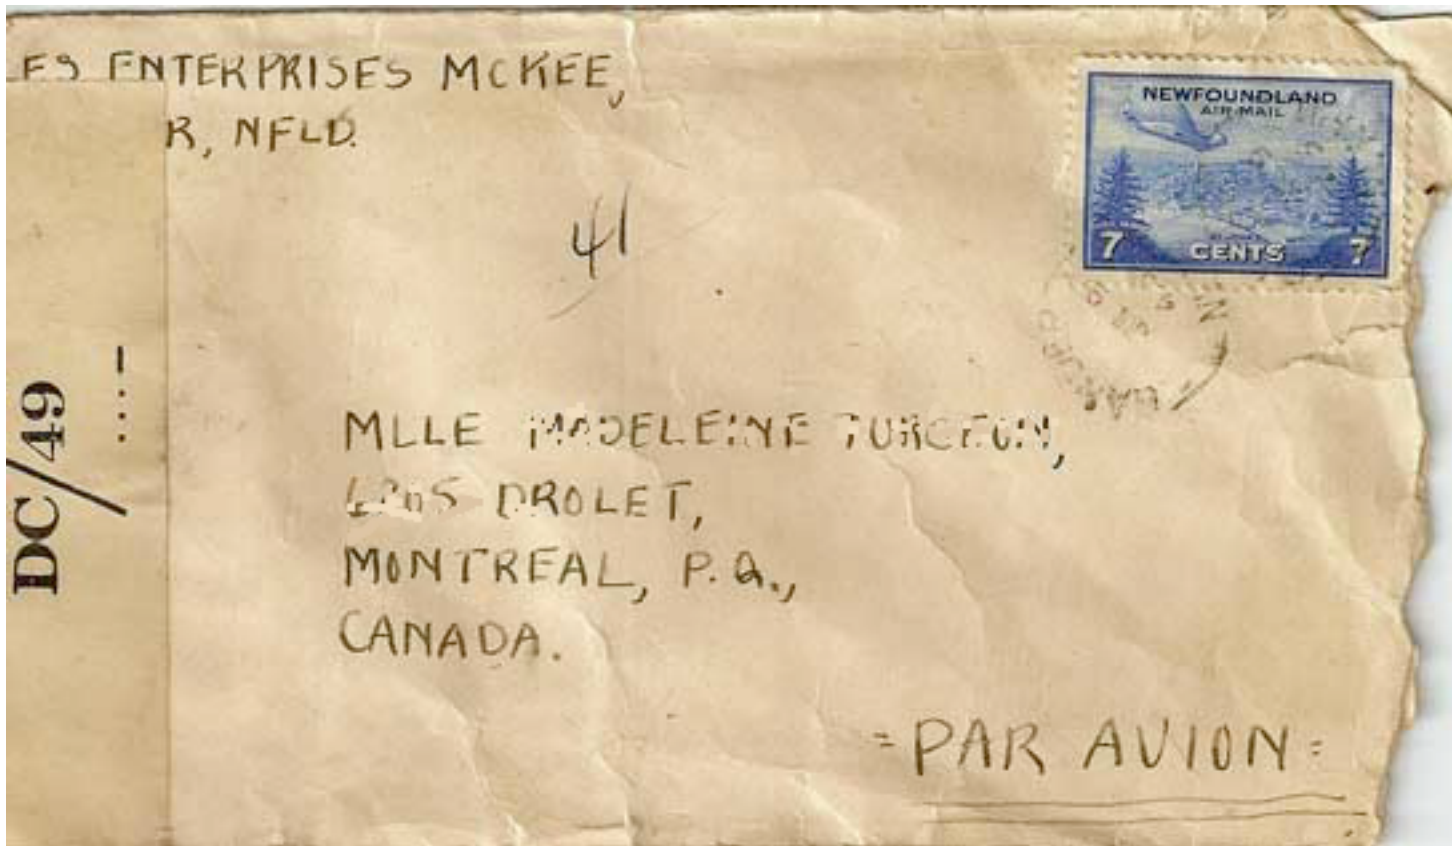 ES ENTERPRISES MCKEE,
R, NFLD.
NEWFOUNDLAND
AIR MAIL
7 CENTS 7
41
DC/49
MLLE MADELEINE TURCEON,
DROLET,
MONTREAL, P.Q.,
CANADA.
=PAR AVION=